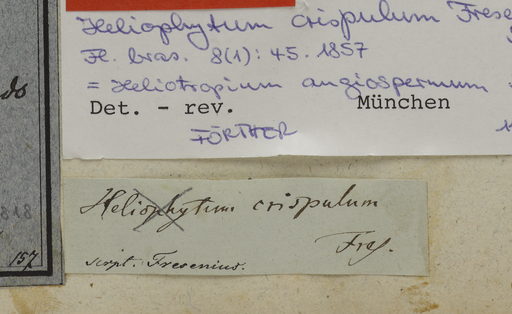 Heliophytum crispulum Frese
Fl. bras. 8(1): 45. 1857
= Heliotropium angiospermum
Det. - rev. München
FÖRTHER
do
818
157
Heliophytum crispulum
Fres.
scrpt. Fresenius.